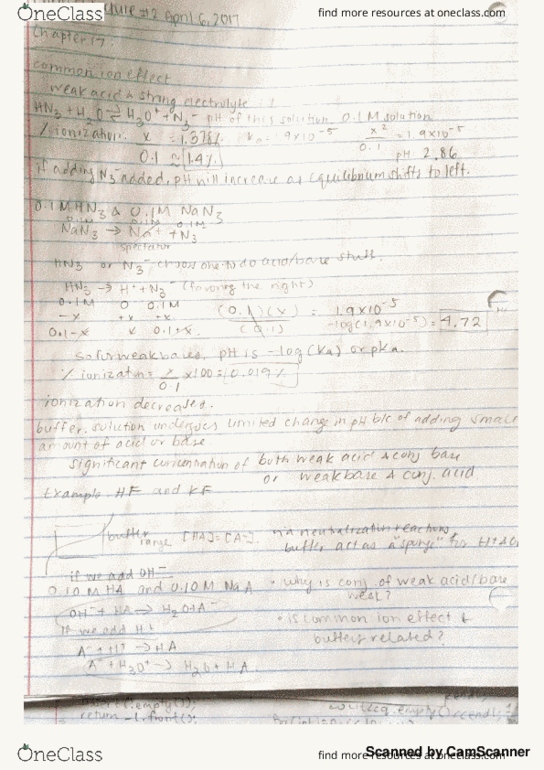 OneClass
find more resources at oneclass.com
#12 April 6, 2017
Chapter 17
common ion effect
weak acid & strong electrolyte
HN3 + H2O ⇌ H3O+ + N3- pH of this solution, 0.1 M solution
% ionization: x/0.1 = 1.378% ≈ 1.4% Ka = 1.9x10^-5 x²/0.1 = 1.9x10^-5
pH 2.86
if adding N3- added, pH will increase as equilibrium shifts to left.
0.1 M HN3 & 0.1M NaN3
0.1M 0.1M 0.1M
NaN3 → Na+ + N3-
spectator
HN3 or N3- choose one to do acid/base stuff.
HN3 → H+ + N3- (favoring the right)
0.1M 0 0.1M
-x +x +x
0.1-x x 0.1+x
(0.1)(x)/(0.1) = 1.9x10^-5
-log(1.9x10^-5) = 4.72
so for weak bases, pH is -log(Ka) or pka.
% ionization = x/0.1 x100 = 0.019%
ionization decreased.
buffer: solution undergoes limited change in pH b/c of adding small
amount of acid or base
significant concentration of both weak acid & conj base
or weak base & conj. acid
Example HF and KF
buffer range [HA]=[A-]. via neutralization reactions
buffer act as a "sponge" for
if we add OH-
0.10 M HA and 0.10M NaA
• why is conj of weak acid/base
weak?
OH- + HA → H2O + A-
If we add H+
• is common ion effect &
buffers related?
A- + H+ → HA
A- + H3O+ → H2O + HA
return -1.front();
OneClass
find more resources at oneclass.com
Scanned by CamScanner